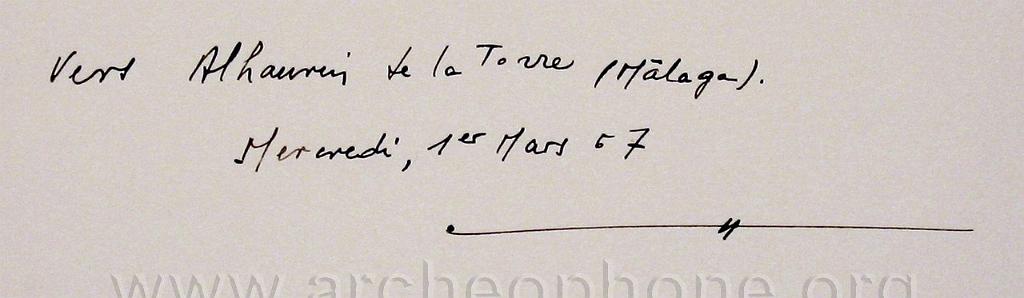 Vers Alhaurin de la Torre (Málaga).
Mercredi, 1er Mars 67
www.archeophone.org